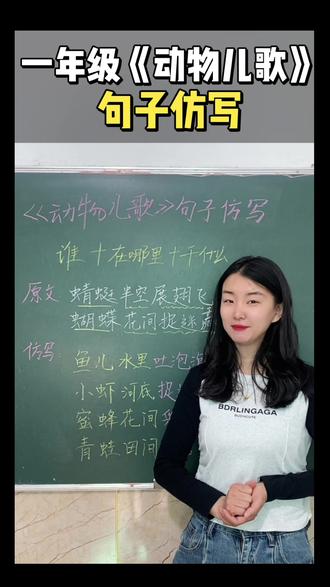 一年级《动物儿歌》
句子仿写
《动物儿歌》句子仿写
谁+在哪里+干什么
原文 蜻蜓半空展翅飞
蝴蝶花间捉迷藏
仿写: 鱼儿水里吐泡
小虾河底捉
蜜蜂花间
青蛙田间
BDRLINGAGA